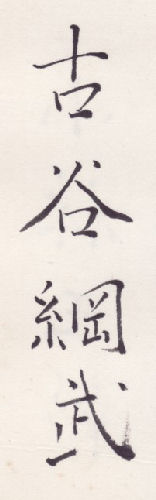 古谷綱武